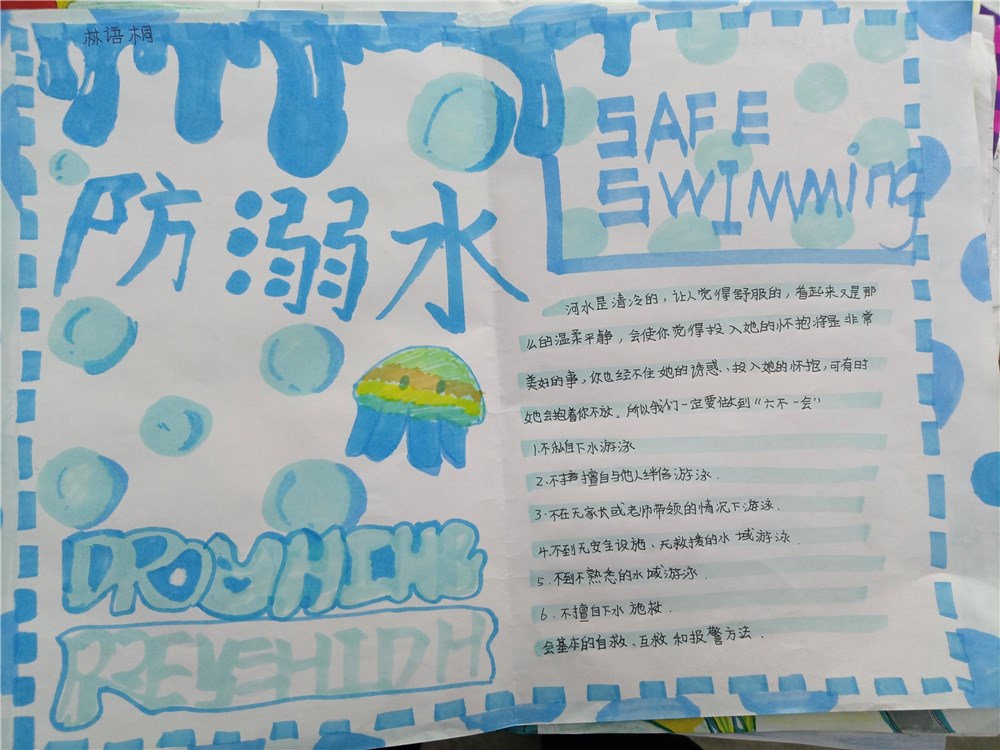 林语桐
防溺水
SAFE
SWIMMing
河水是清冷的，让人觉得舒服的，看起来又是那
么的温柔平静，会使你觉得投入她的怀抱将是非常
美好的事，你也经不住她的诱惑、投入她的怀抱，可有时
她会抱着你不放。所以我们一定要做到“六不一会”
1.不私自下水游泳
2.不擅自与他人结伴游泳.
3.不在无家长或老师带领的情况下游泳.
4.不到无安全设施、无救援的水域游泳.
5.不到不熟悉的水域游泳.
6.不擅自下水施救.
会基本的自救、互救和报警方法.